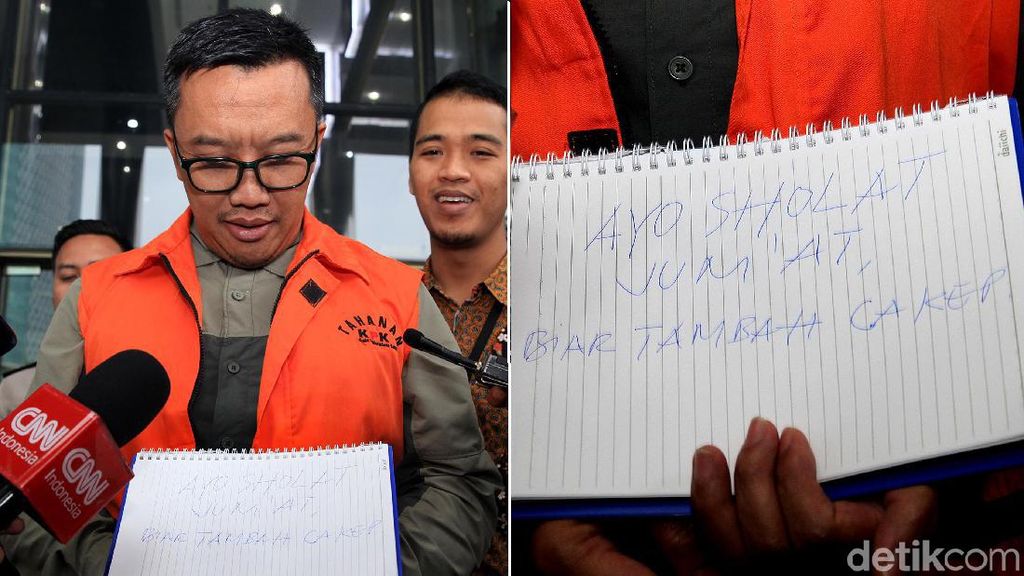 TAHANAN
KPK
CNN
Indonesia
CNN
Indonesia
AYO SHOLAT
JUM'AT,
BIAR TAMBAH CAKEP
daiichi
AYO SHOLAT
JUM'AT,
BIAR TAMBAH CAKEP
detikcom